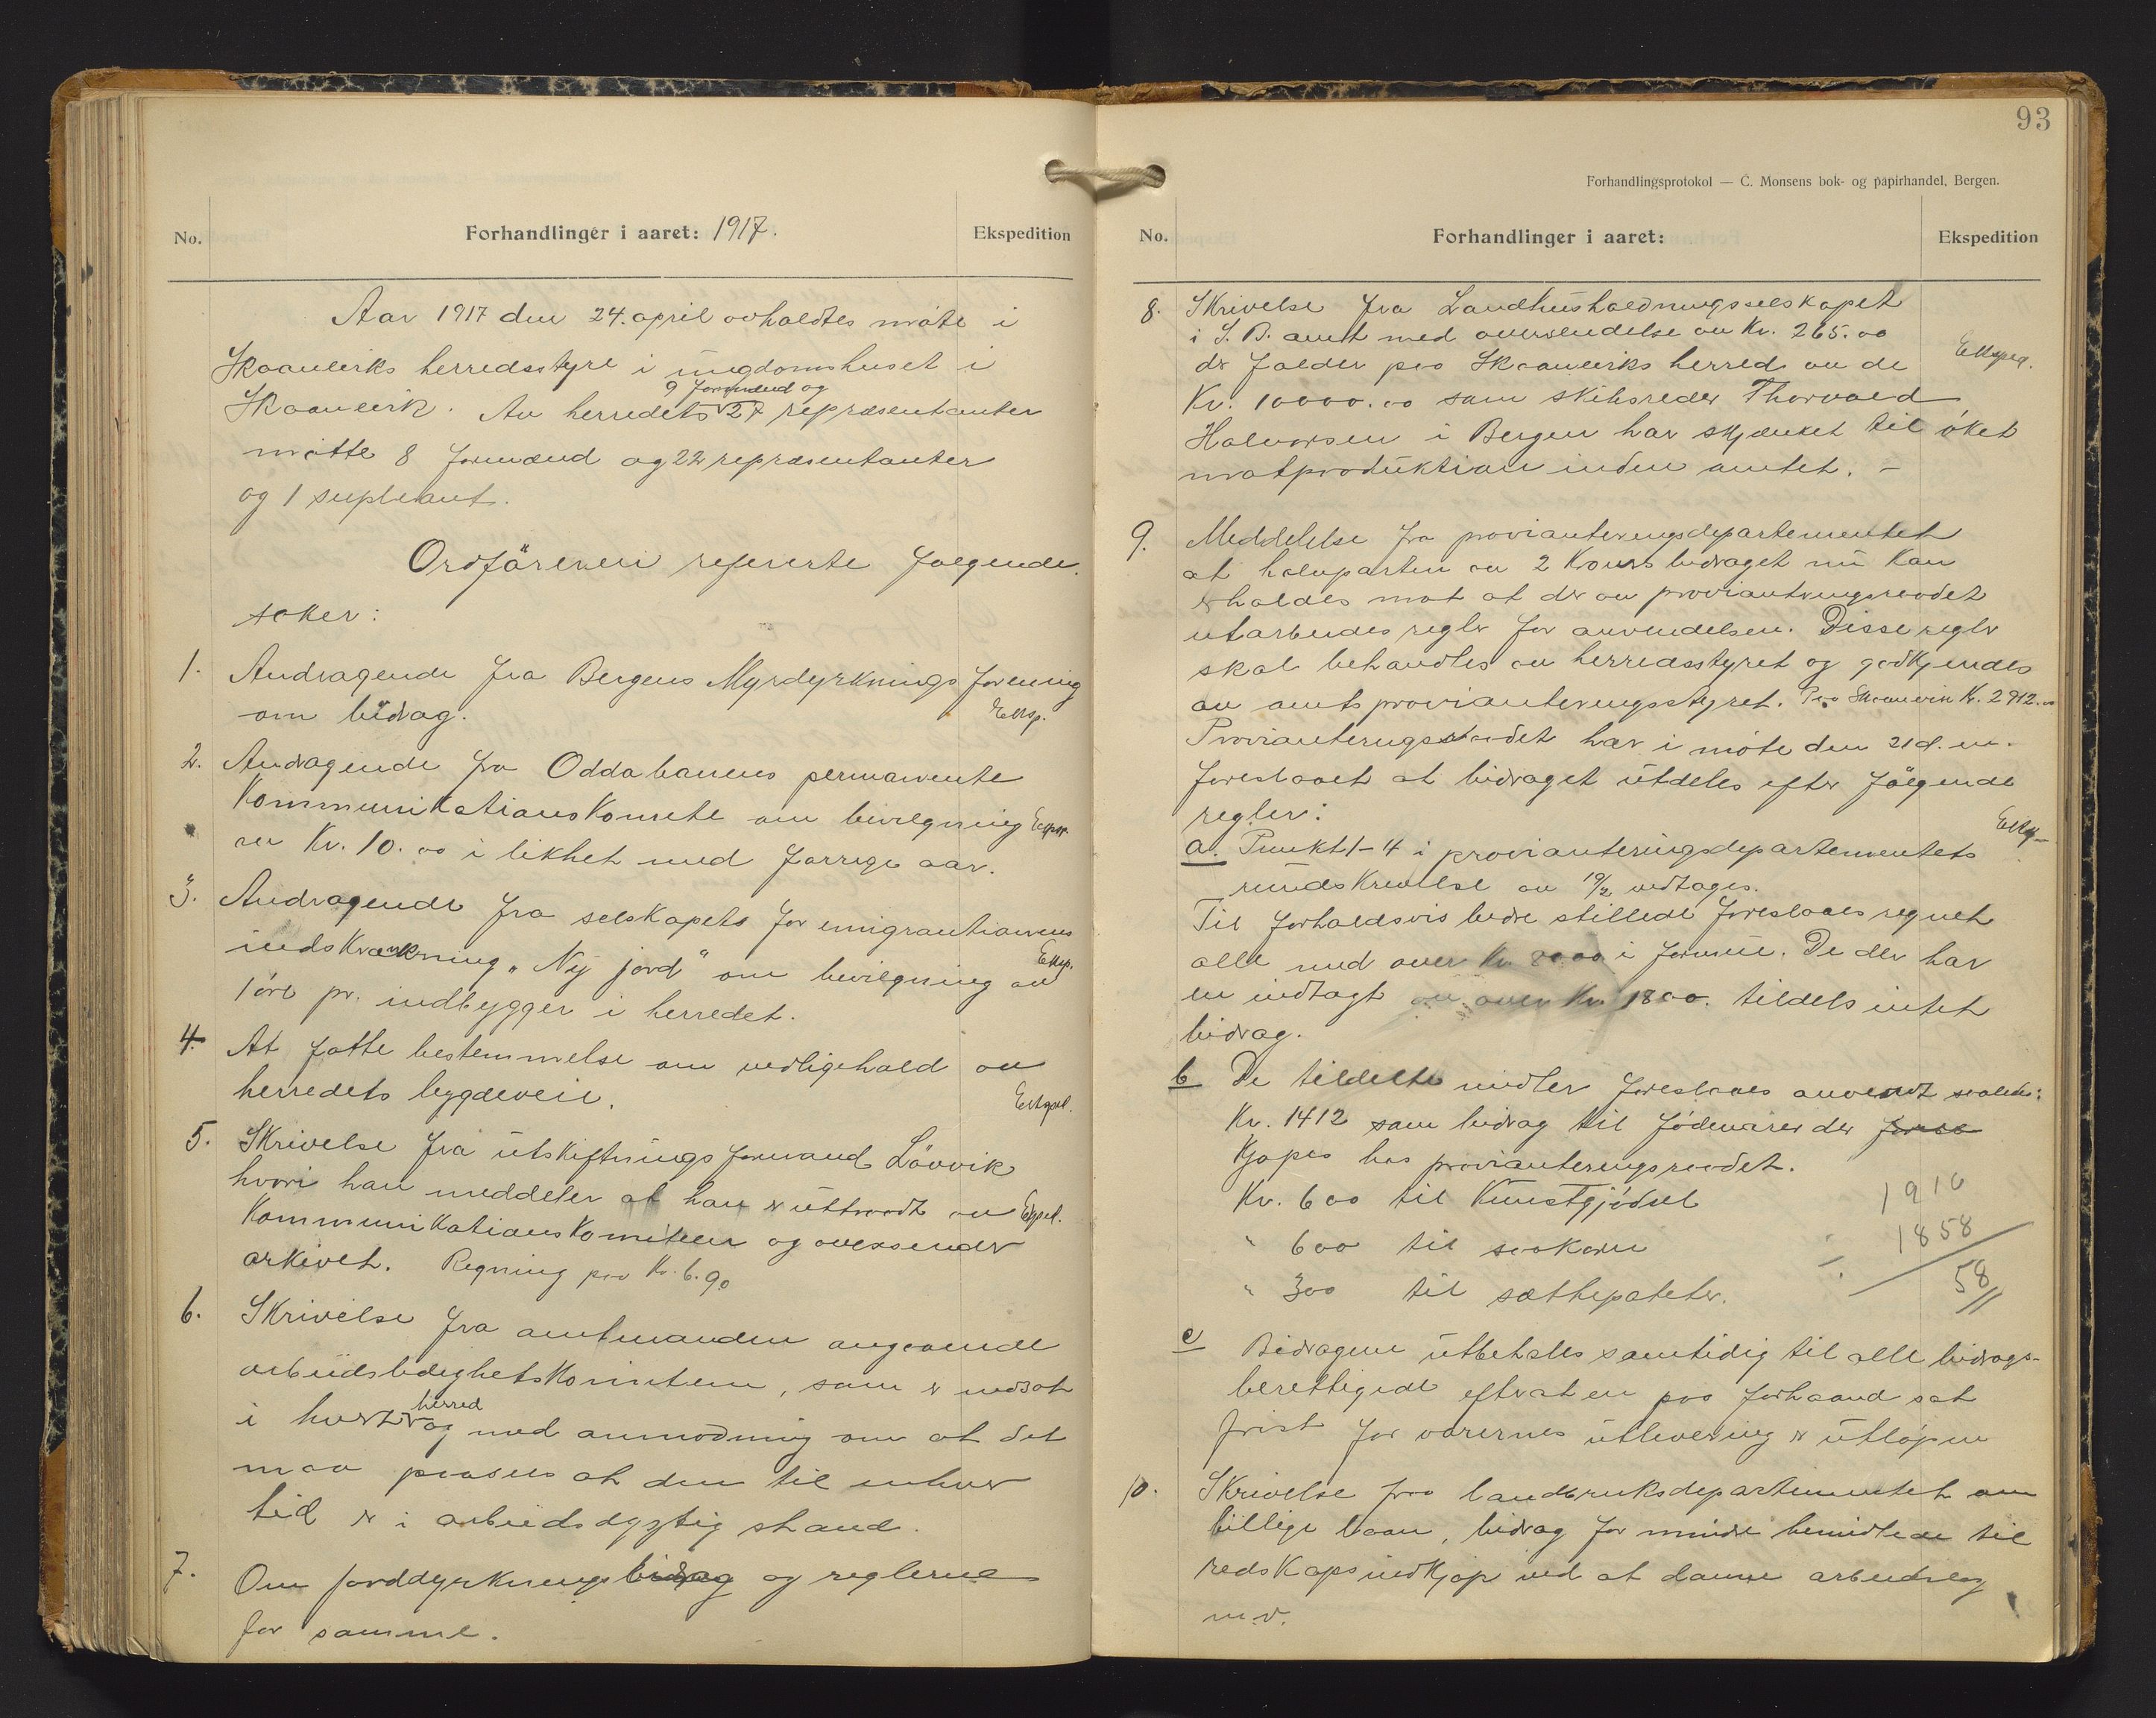 No.
Forhandlinger i aaret: 1917.
Ekspedition
Aar 1917 den 24. april avholdtes møte i
Skaaneviks herredsstyre i ungdomshuset i
9 formænd og
Skaanevik. Av herredets 27 repræsentanter
møtte 8 formænd og 22 repræsentanter
og 1 supleant.
Ordføreren refererte følgende
saker:
1. Andragende fra Bergens Myrdyrknings forening
om bidrag. Eksp.
2. Andragende fra Oddabanens permanente
Kommunikationskomite om bevilgning Eksp.
av Kr. 10.00 i likhet med forrige aar.
3. Andragende fra selskapets for emigrantionens
indskrænkning "Ny jord" om bevilgning av Eksp.
1 øre pr. indbygger i herredet.
4. At fatte bestemmelse om vedligehold av
herredets bygdeveie. Eksped.
5. Skrivelse fra utskiftningsformand Løvvik
hvori han meddeler at han er uttraadt av Exped.
Kommunikationskomiteen og oversender
arkivet. Regning paa Kr. 6.90
6. Skrivelse fra amtmanden angaaende
arbeidsledighetskomiteen, som er nedsat
herred
i hvert og med anmodning om at det
maa paasees at den til enhver
tid er i arbeidsdygtig stand.
7. Om jorddyrknings bidrag og reglerne
for samme.
93
Forhandlingsprotokol — C. Monsens bok- og papirhandel, Bergen.
No.
Forhandlinger i aaret:
Ekspedition
8. Skrivelse fra Landhusholdningsselskapet
i S. B. amt med oversendelse av Kr. 265.00
der falder paa Skaaneviks herred av de Eksped.
Kr. 10000.00 som skibsreder Thorvald
Halvorsen i Bergen har skjænket til øket
matproduktion inden amtet. –
9. Meddelelse fra provianteringsdepartementet
at halvparten av 2 Krones bidraget nu kan
erholdes mot at der av provianteringsraadet
utarbeides regler for anvendelsen. Disse regler
skal behandles av herredsstyret og godkjendes
av amtsprovianteringsstyret. Paa Skaanevik Kr. 2912.00
Provianteringsraadet har i møte den 21 d. m.
foreslaaet at bidraget utdeles efter følgende
regler: Eksp.
a. Punkt 1-4 i provianteringsdepartementets
rundskrivelse av 19/2 vedtages.
Til forholdsvis bedre stillede foreslaaes regnet
alle med over Kr. 8000 i formue. De der har
en indtægt av over Kr. 1800. tildels intet
bidrag.
b De tildelte midler foreslaaes anvendt saaledes:
Kr. 1412 som bidrag til fødevarer der
kjøpes hos provianteringsraadet.
Kr. 600 til Kunstgjødsel 1916
" 600 til saakorn 1858
" 300 til sættepoteter. 58
c Bidragene utbetales samtidig til alle bidrags-
berettigede efterat en paa forhaand sat
frist for varernes utlevering er utløpen
10. Skrivelse fra landbruksdepartementet om
billige laan, bidrag for mindre bemidlede til
redskapsindkjøp ved at danne arbeidslag
m. v.